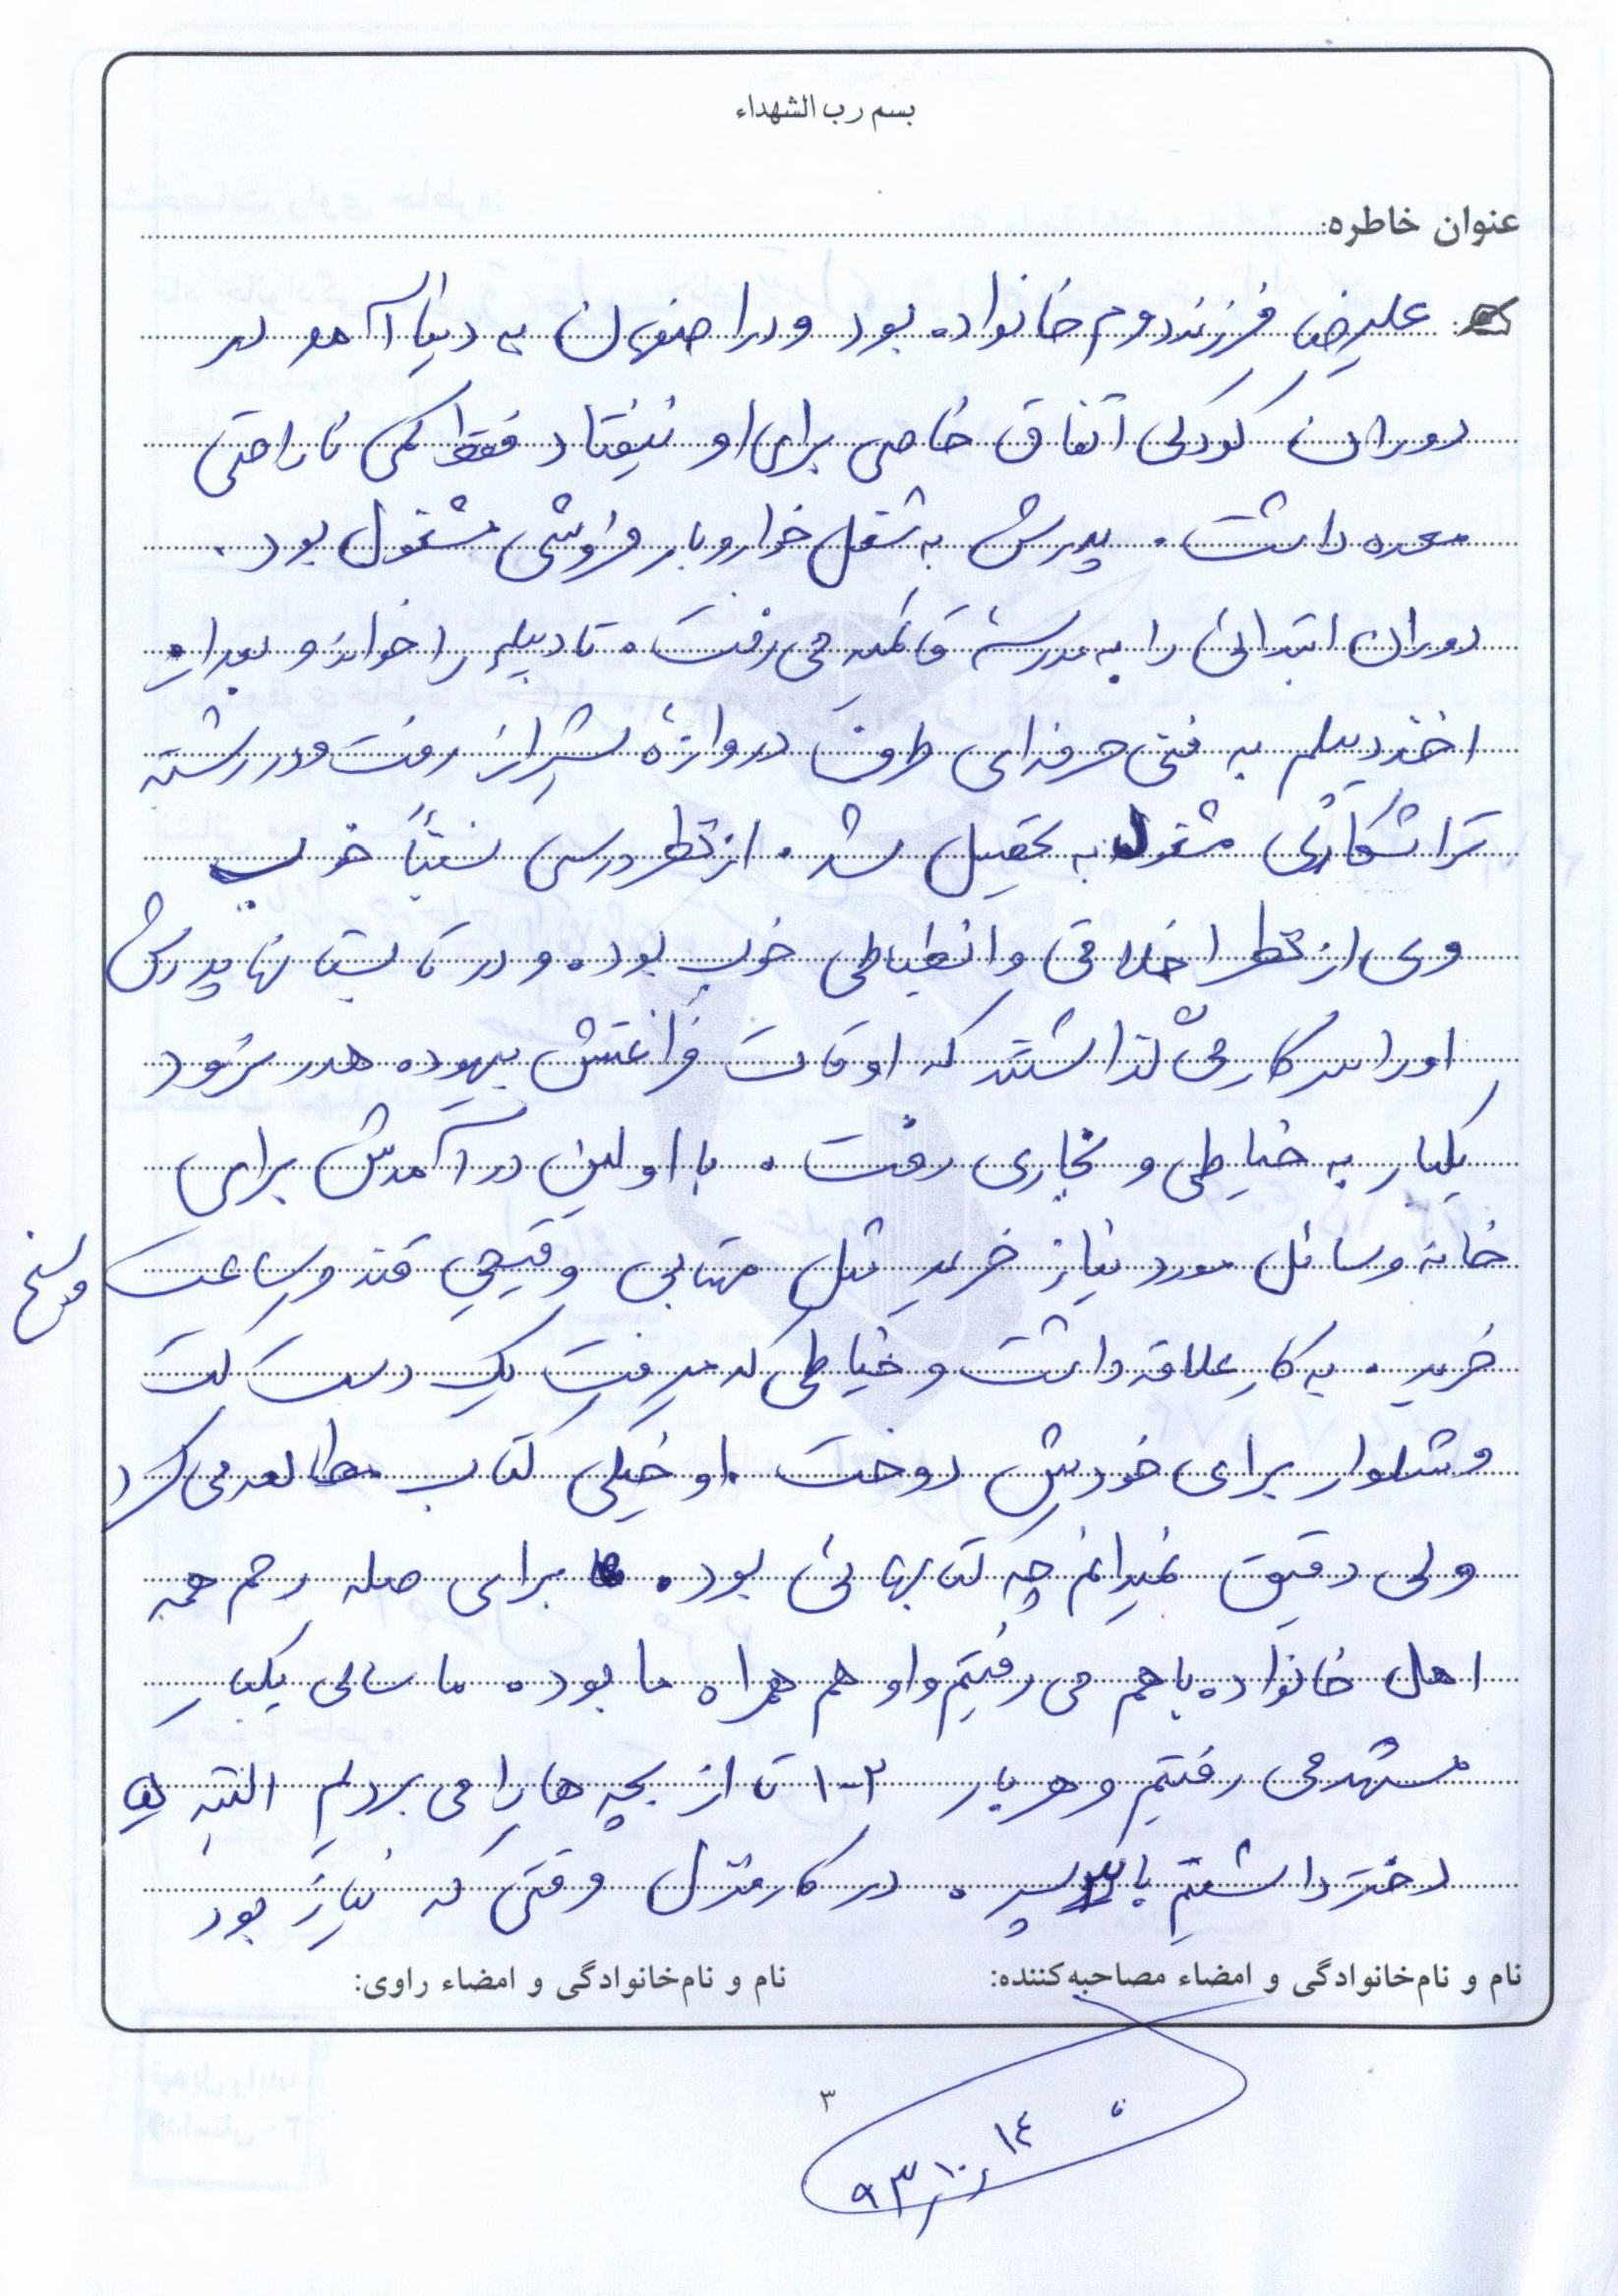 بسم رب الشهداء
عنوان خاطره:
علیرضا فرزند دوم خانواده بود و در اصفهان به دنیا آمد و در
دوران کودکی اتفاق خاصی برای او نیفتاد فقط کمی ناراحتی
معده داشت. پدرش به شغل خواروبار فروشی مشغول بود.
دوران ابتدائی را به مدرسه قائمیه می رفت. تا دیپلم را خواند و بعد از
اخذ دیپلم به فنی حرفه ای طرف دروازه شیراز رفت و در رشته
تراشکاری مشغول به تحصیل شد. از نظر درسی نسبتاً خوب
وی از نظر اخلاقی و انظباطی خوب بود. و در تابستانها پدرش
او را سر کار می گذاشتند که اوقات فراغتش بیهوده هدر نرود
یکبار به خیاطی و نجاری رفت. با اولین درآمدش برای
خانه وسائل مورد نیاز خرید مثل مهتابی و قیچی قند و ساعت
و سیخ
خرید. به کار علاقه داشت و خیاطی که می رفت یک دست کت
و شلوار برای خودش دوخت. او خیلی کتاب مطالعه می کرد
ولی دقیق نمیدانم چه کتابهائی بود. برای صله رحم همه
اهل خانواده با هم می رفتیم و او هم همراه ما بود. ما سالی یکبار
مشهد می رفتیم و هر بار ۲-۱ تا از بچه ها را می بردیم البته ۵
دختر داشتیم با پسر. در کار منزل وقتی که نیاز بود
نام و نام‌خانوادگی و امضاء مصاحبه‌کننده:
نام و نام‌خانوادگی و امضاء راوی:
۳
۹۳/۱۰/۱۴